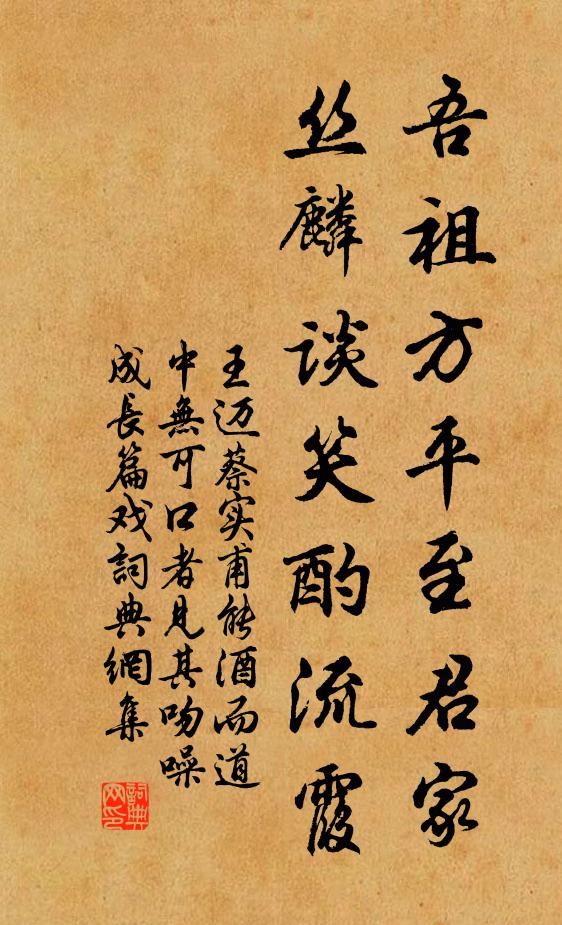 吾祖方平至君家
丝麟谈笑酌流霞
王迈蔡实甫能酒而道
中無可口者见其吻噪
成長篇戏詞典網集
詞典网印